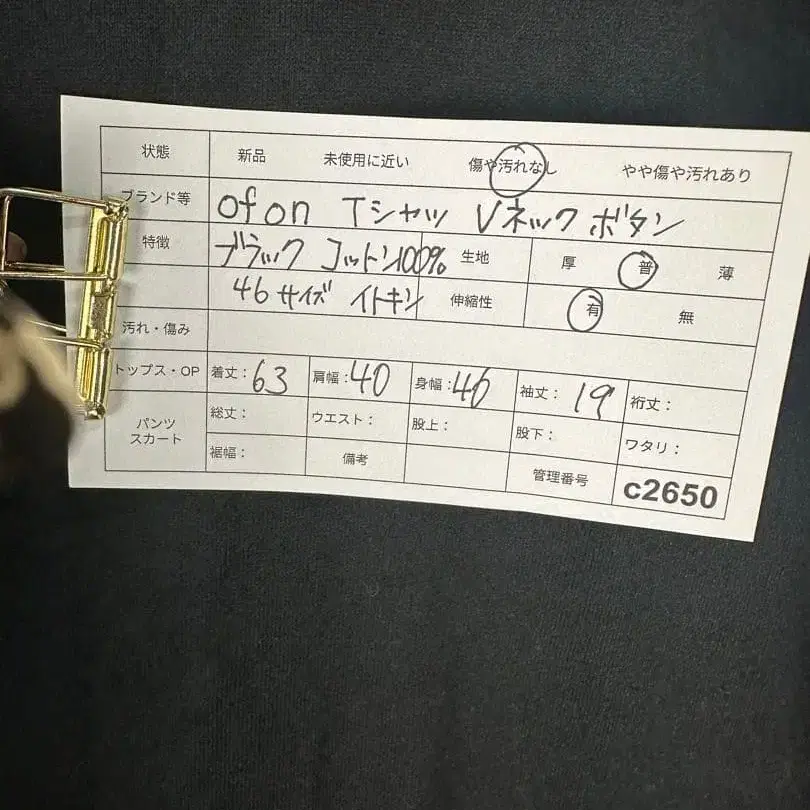 状態 新品 未使用に近い 傷や汚れなし やや傷や汚れあり
ブランド等 ofon Tシャツ Vネック ボタン
特徴 ブラック コットン100% 生地 厚 普 薄
46サイズ イトキン 伸縮性 有 無
汚れ・傷み
トップス・OP 着丈:63 肩幅:40 身幅:46 袖丈:19 裄丈:
パンツ スカート 総丈: ウエスト: 股上: 股下: ワタリ:
裾幅: 備考 管理番号 c2650